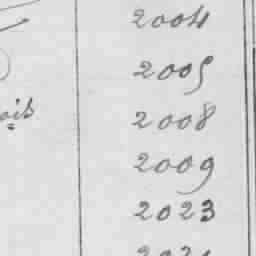 2004
2005
2008
2009
2023